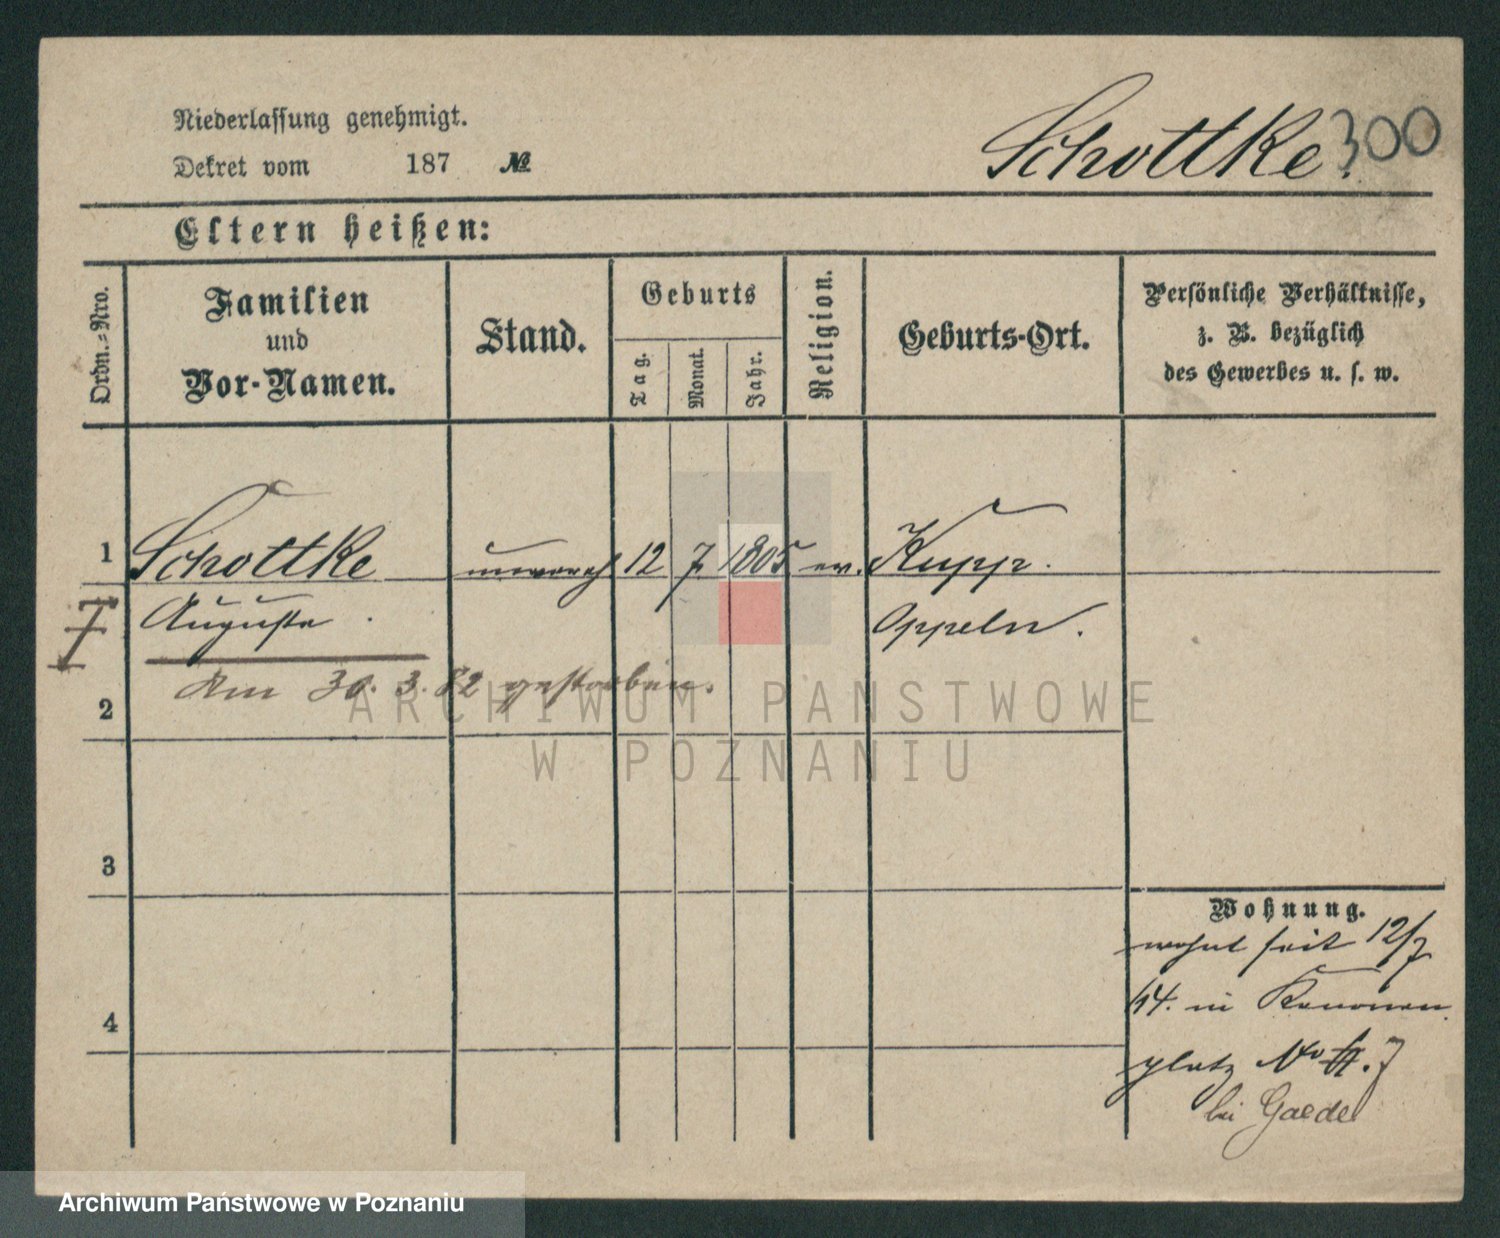 Niederlassung genehmigt.
Dekret vom 187 №
Schottke. 300
Eltern heißen:
Ordn.-Nro.
Familien
und
Vor-Namen.
Stand.
Geburts
Tag.
Monat.
Jahr.
Religion.
Geburts-Ort.
Persönliche Verhältnisse,
z. B. bezüglich
des Gewerbes u. s. w.
1 Schottke unvereh 12 7 1805 ev. Kupp.
Auguste. Oppeln.
Am 30. 3. 82 gestorben.
2
3
4
Wohnung.
wohnt seit 12/7
74. in Kanonen
platz No 7
bei Gaede
ARCHIWUM PAŃSTWOWE
W POZNANIU
Archiwum Państwowe w Poznaniu